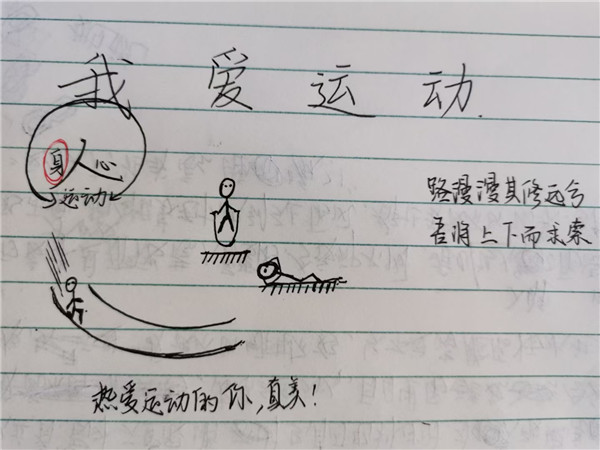 我爱运动.
身人心
运动
路漫漫其修远兮
吾将上下而求索
热爱运动的你,真美!